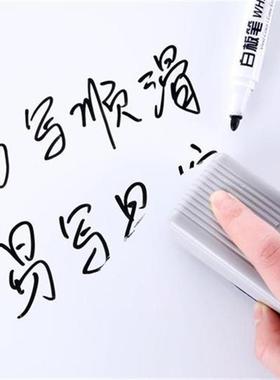 白板笔 WH
写顺滑
易写